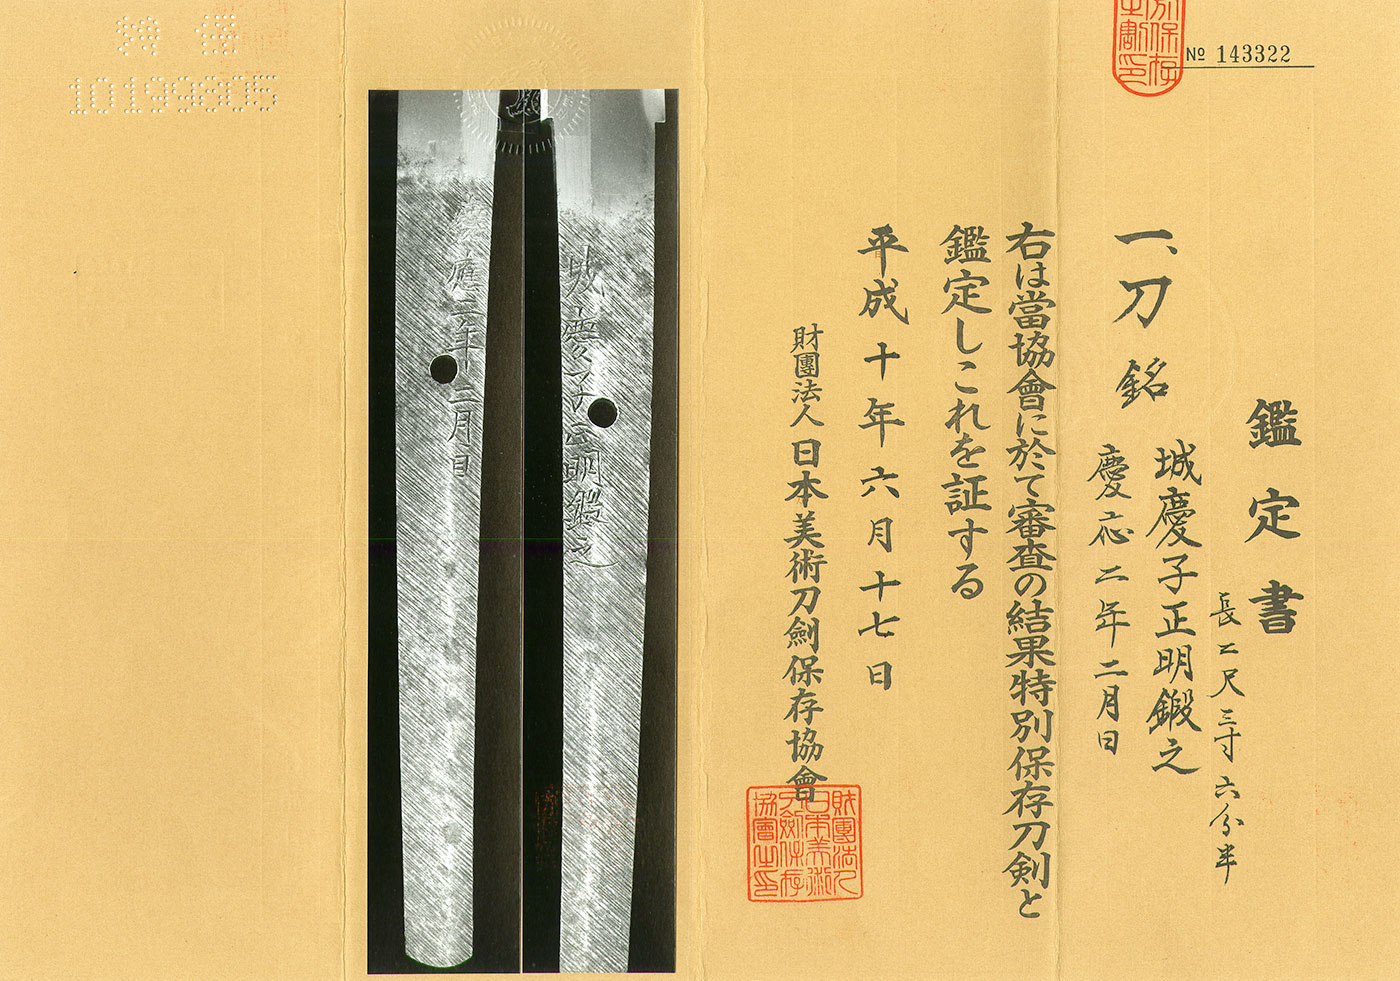 № 143322
鑑定書
長二尺三寸六分半
一、刀 銘 城慶子正明鍛之
慶応二年二月日
右は當協會に於て審査の結果特別保存刀剣と
鑑定しこれを証する
平成十年六月十七日
財團法人日本美術刀劍保存協會
財團法人
日本美術
刀劍保存
協會之印
城慶子正明鍛之
慶應二年二月日
10199805